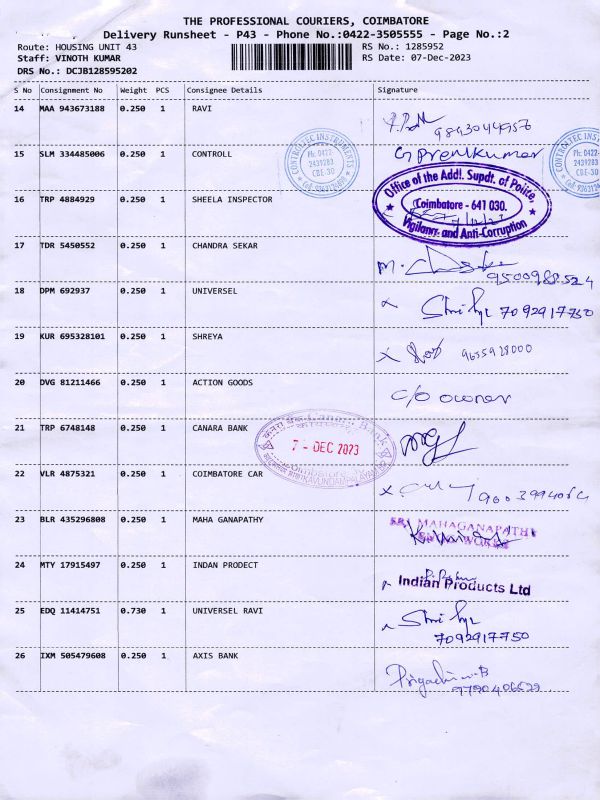 THE PROFESSIONAL COURIERS, COIMBATORE
Delivery Runsheet - P43 - Phone No.:0422-3505555 - Page No.:2
Route: HOUSING UNIT 43 RS No.: 1285952
Staff: VINOTH KUMAR RS Date: 07-Dec-2023
DRS No.: DCJB128595202
S No Consignment No Weight PCS Consignee Details Signature
14 MAA 943673188 0.250 1 RAVI
15 SLM 334485006 0.250 1 CONTROLL G Premkumar
CONTROLTEC INSTRUMENTS
Ph: 0422-
2439283
CBE-30
16 TRP 4884929 0.250 1 SHEELA INSPECTOR
Office of the Addl. Supdt. of Police,
Coimbatore - 641 030.
Vigilance and Anti-Corruption
17 TDR 5450552 0.250 1 CHANDRA SEKAR
18 DPM 692937 0.250 1 UNIVERSEL 7092917750
19 KUR 695328101 0.250 1 SHREYA 9655928000
20 DVG 81211466 0.250 1 ACTION GOODS C/o owner
21 TRP 6748148 0.250 1 CANARA BANK
Canara Bank
7 - DEC 2023
22 VLR 4875321 0.250 1 COIMBATORE CAR
23 BLR 435296808 0.250 1 MAHA GANAPATHY
SRI MAHAGANAPATHY
24 MTY 17915497 0.250 1 INDAN PRODECT
Indian Products Ltd
25 EDQ 11414751 0.730 1 UNIVERSEL RAVI
7092917750
26 IXM 505479608 0.250 1 AXIS BANK